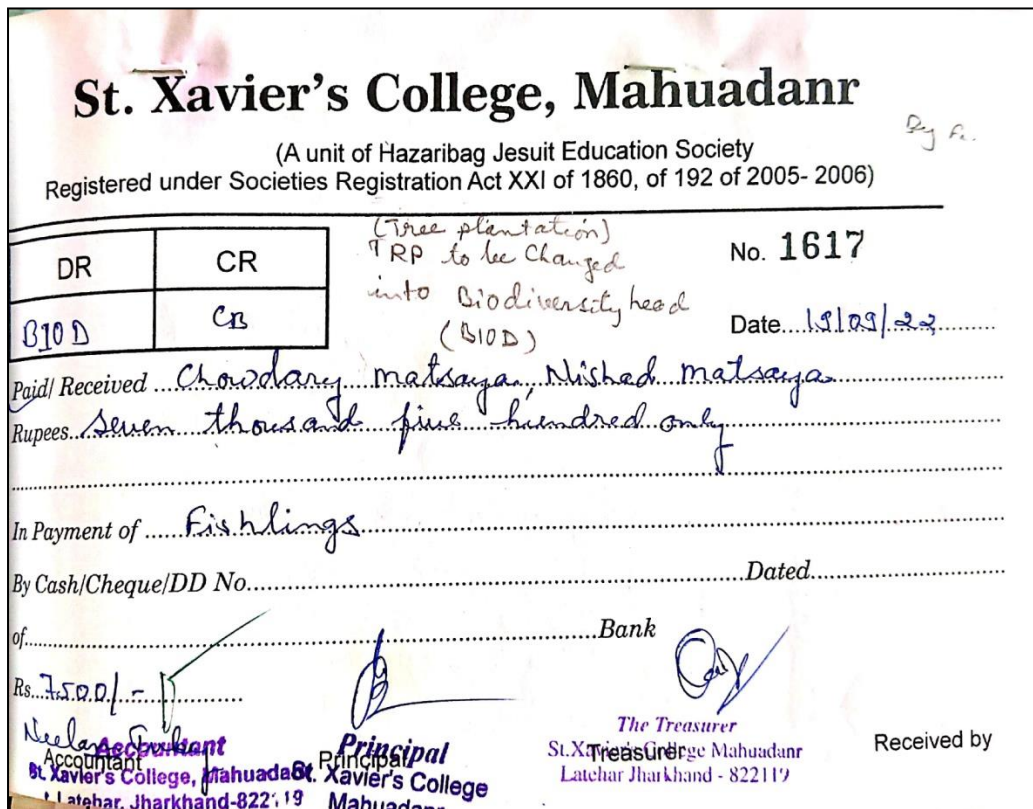 St. Xavier's College, Mahuadanr
(A unit of Hazaribag Jesuit Education Society
Registered under Societies Registration Act XXI of 1860, of 192 of 2005- 2006)
DR CR
BIOD CB
(Tree plantation)
TRP to be Changed
into Biodiversity head
(BIOD)
No. 1617
Date 19/09/22
Paid/ Received Chowdary matsaya, Nishad matsaya
Rupees seven thousand five hundred only
In Payment of Fishlings
By Cash/Cheque/DD No. Dated
of Bank
Rs. 7500/-
Accountant
Accountant
St. Xavier's College, Mahuadanr
Latehar, Jharkhand-822119
Principal
Principal
St. Xavier's College
Mahuadanr
The Treasurer
St. Xavier's College Mahuadanr
Treasurer
Latehar Jharkhand - 822119
Received by